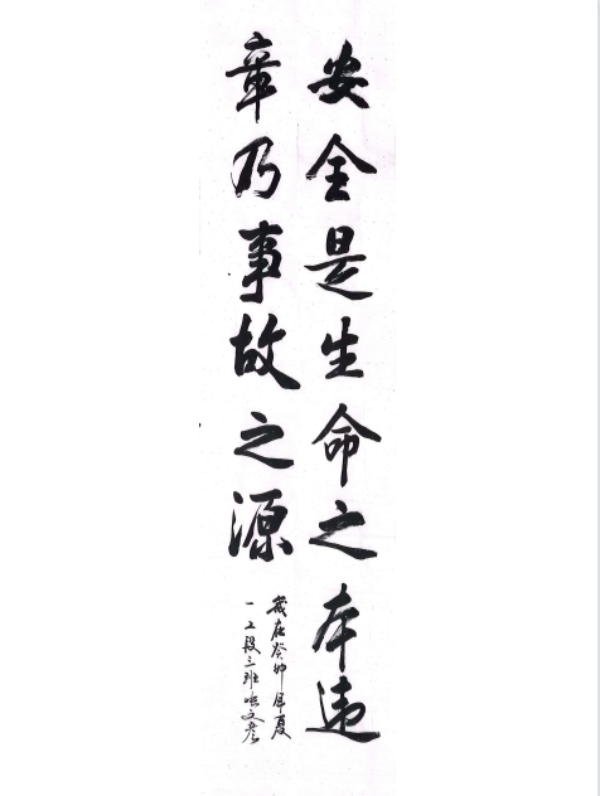 安全是生命之本违
章乃事故之源
歲在癸卯年夏
一工段三班 文彦